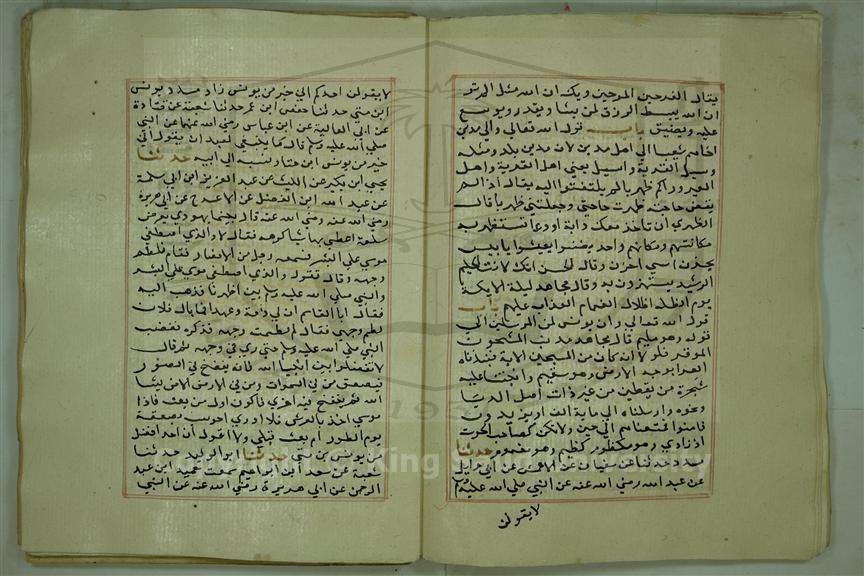 يقال الفرحين المرحين ويكان الله مثل الم تر
ان الله يبسط الرزق لمن يشا ويقدر ويوسع
عليه ويضيق باب قول الله تعالي والي مدين
اخاهم شعيبا الي اهل مدين لان مدين بلد ومثله
وسئل القرية واسيل يعني اهل القرية واهل
العير وراكم ظهريا لم يلتفتوا اليه يقال اذا لم
يقض حاجته ظهرت حاجتي وجعلتني ظهريا قال
الظهري ان تاخذ معك دابة او وعا تستظهر به
مكانتهم ومكانهم واحد يغنوا يعيشوا يايس
يحزن اسي احزن وقال الحسن انك لانت الحليم
الرشيد يستهزون به وقال مجاهد ليكة الايكة
يوم الظلة اظلال الغمام العذاب عليهم باب
قول الله تعالي وان يونس لمن المرسلين الي
قوله وهو مليم قال مجاهد مذنب المشحون
الموقر فلولا انه كان من المسبحين الاية فنبذناه
بالعرا بوجه الارض وهو سقيم وانبتنا عليه
شجرة من يقطين من غير ذات اصل الدبا
ونحوه وارسلناه الي ماية الف او يزيدون
فامنوا فمتعناهم الي حين ولا تكن كصاحب الحوت
اذ نادي وهو مكظوم كظيم وهو مغموم حدثنا
مسدد حدثنا عن سفيان عن الاعمش عن ابي وايل
عن عبد الله رضي الله عنه عن النبي صلي الله عليه وسلم
لا يقولن
لا يقولن احدكم اني خير من يونس زاد مسدد يونس
ابن متي حدثنا حفص ابن عمر حدثنا شعبة عن قتادة
عن ابي العالية عن ابن عباس رضي الله عنهما عن النبي
صلي الله عليه وسلم قال ما ينبغي لعبد ان يقول اني
خير من يونس ابن متا ونسبه الي ابيه حدثنا
يحيي ابن بكير عن الليث عن عبد العزيز ابن ابي سلمة
عن عبد الله ابن الفضل عن الاعرج عن ابي هريرة
رضي الله عنه قال بينما يهودي يعرض
سلعة اعطي بها شيا كرهه فقال لا والذي اصطفي
موسي علي البشر فسمعه رجل من الانصار فقام فلطم
وجهه وقال تقول والذي اصطفي موسي علي البشر
والنبي صلي الله عليه وسلم بين اظهرنا فذهب اليه
فقال ابا القاسم ان لي ذمة وعهدا فما بال فلان
لطم وجهي فقال لم لطمت وجهه فذكره فغضب
النبي صلي الله عليه وسلم حتي ري في وجهه ثم قال
لا تفضلوا بين انبيا الله فانه ينفخ في الصور
فيصعق من في السموات ومن في الارض الا من يشا
الله ثم ينفخ فيه اخري فاكون اول من بعث فاذا
موسي اخذ بالعرش فلا ادري احوسب بصعقة
يوم الطور ام بعث قبلي ولا اقول ان احد افضل
من يونس بن متي حدثنا ابو الوليد حدثنا
شعبة عن سعد ابن ابراهيم سمعت حميد ابن عبد
الرحمن عن ابي هريرة رضي الله عنه عن النبي